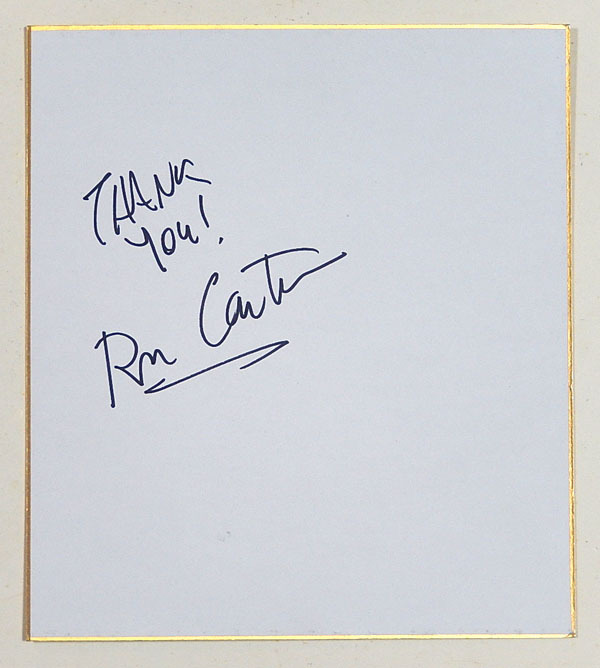 THANK
YOU!
Ron Carter